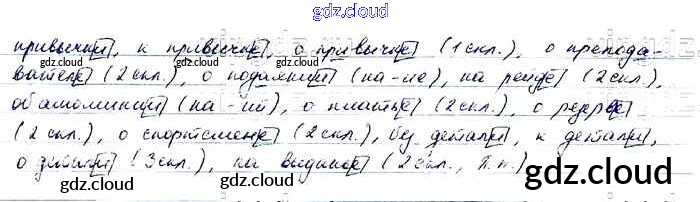 gdz.cloud
привычки, к привычке, о привычке (1 скл.), о препода-
вателе (2 скл.), о подлежащи (на -ие), на рейде (2 скл.),
об амолинии (на -ий), о платье (2 скл.), о
(2 скл.), о спортсмене (2 скл.), без детали, к детали,
о детали (3 скл.), на видике (2 скл., П.п.)
gdz.cloud gdz.cloud
gdz.cloud gdz.cloud